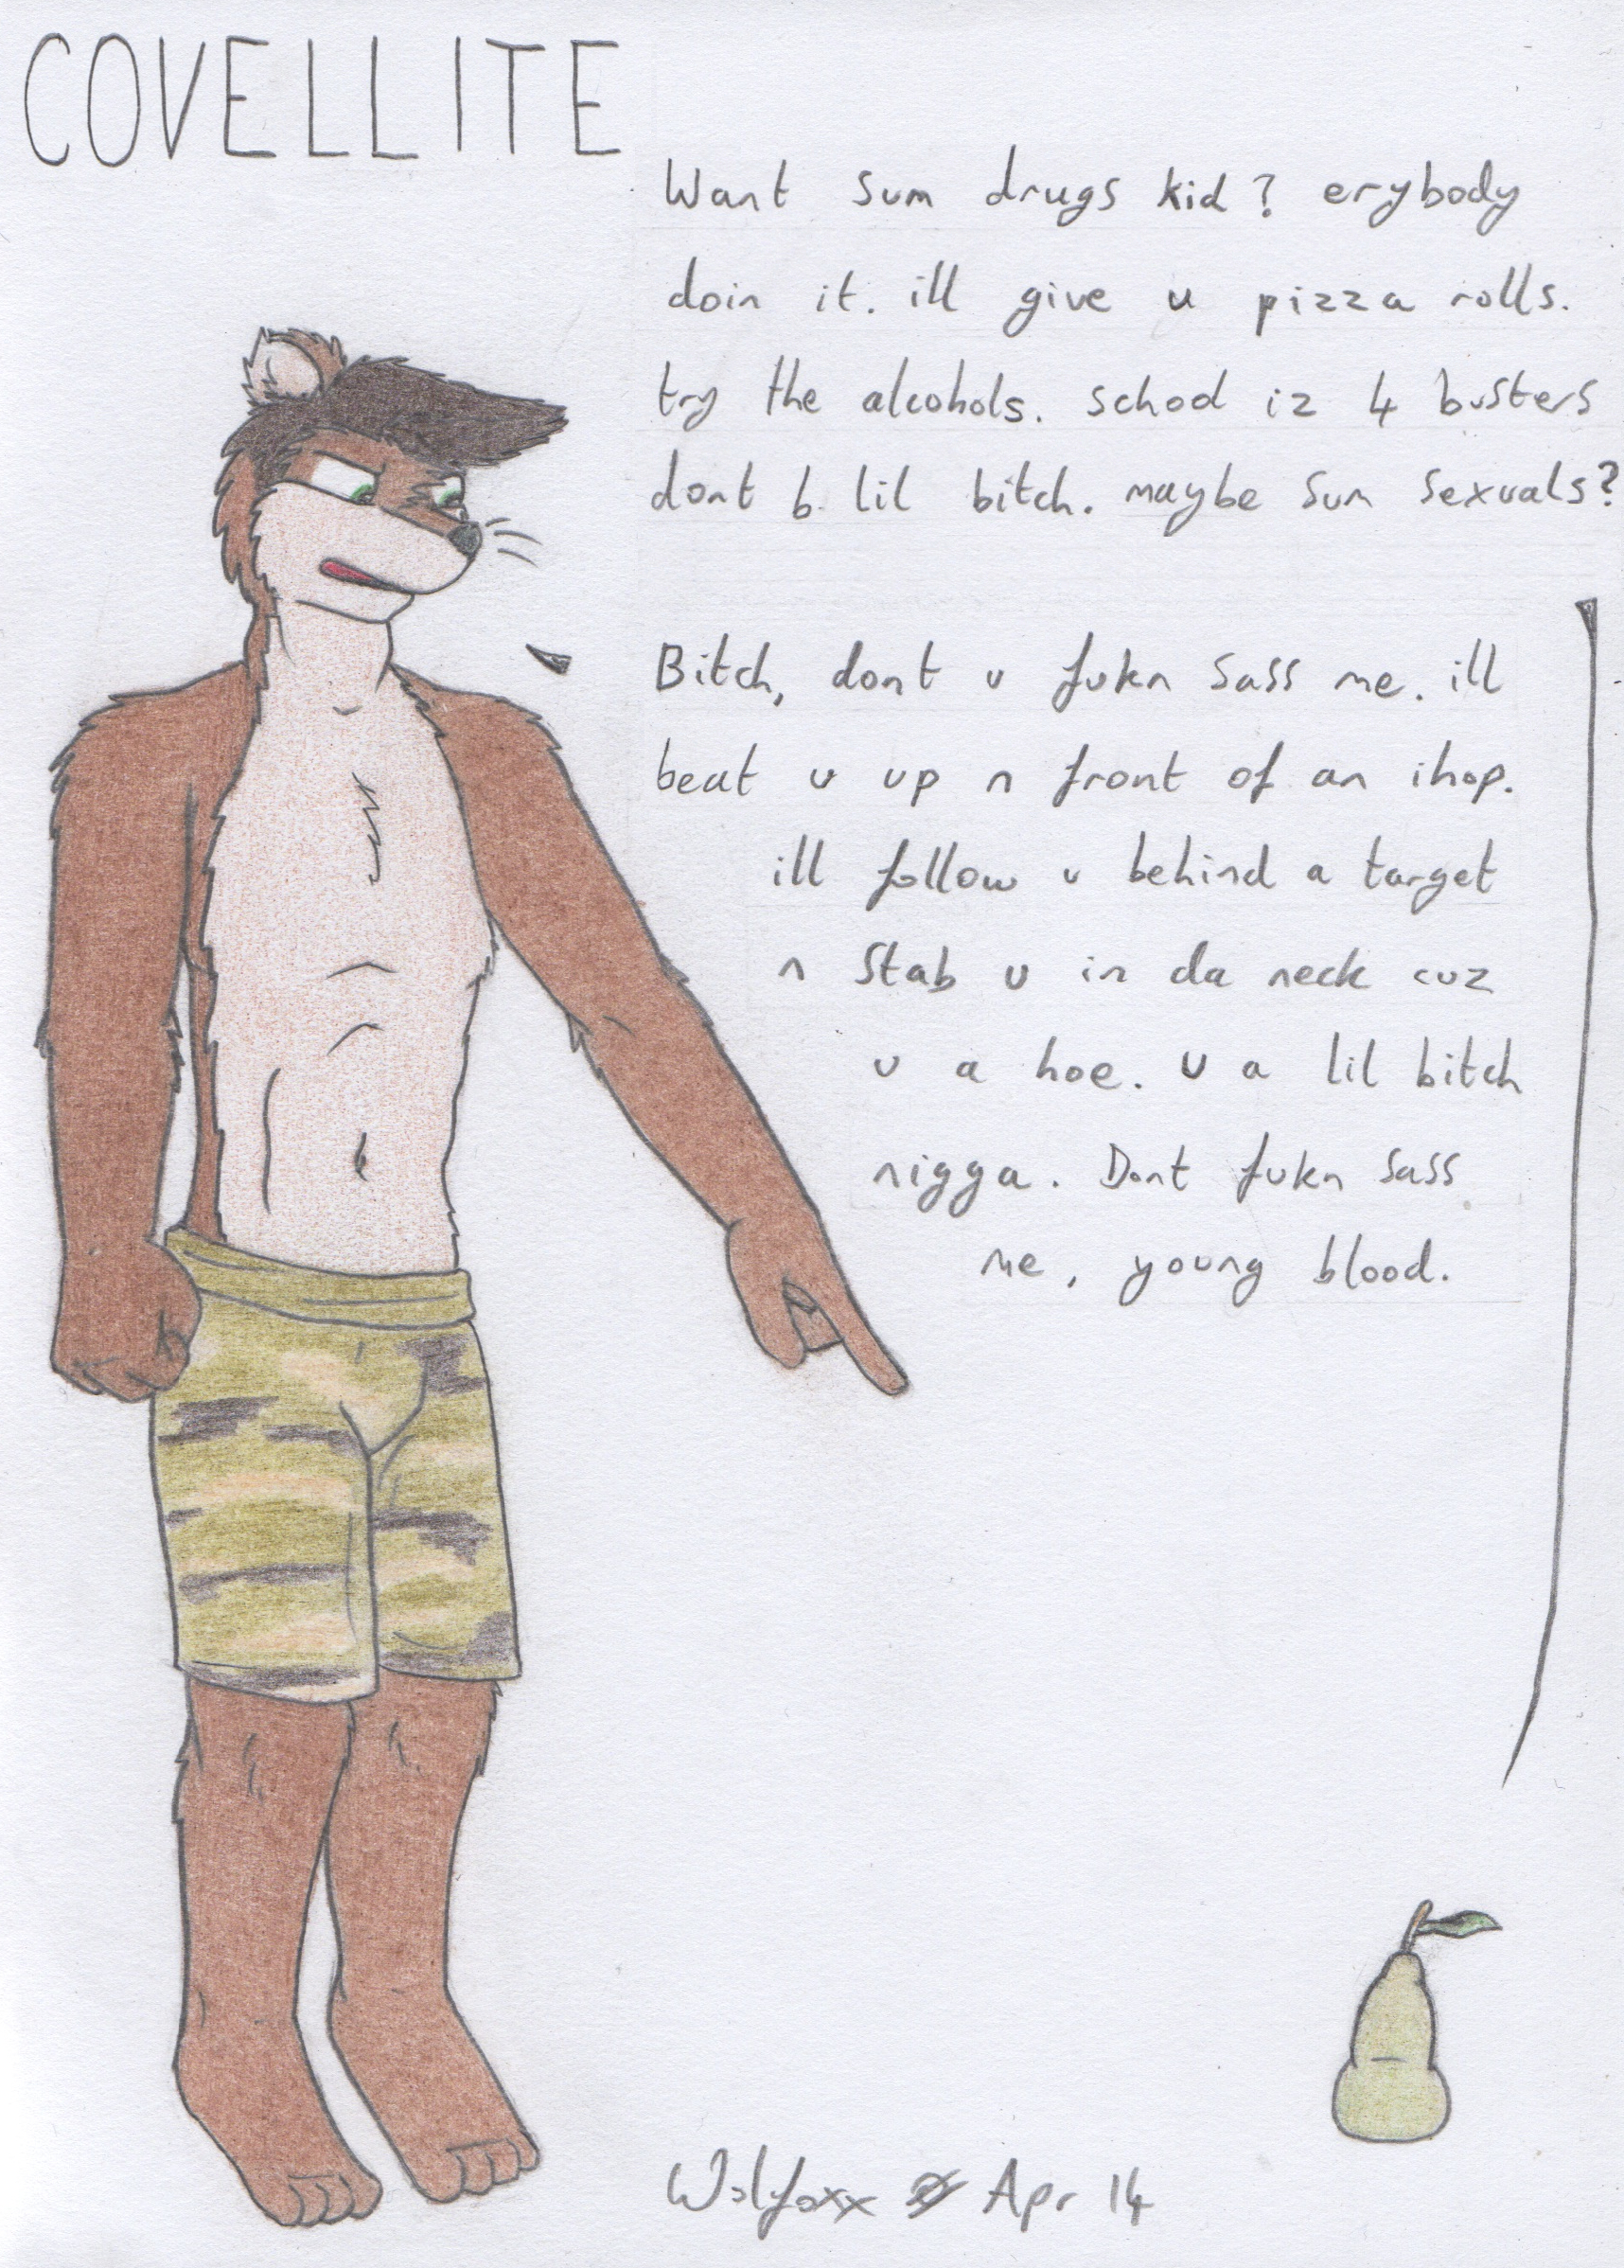 COVELLITE
Want sum drugs kid? erybody
doin it. ill give u pizza rolls.
try the alcohols. school iz 4 busters
dont b lil bitch. maybe sum sexuals?
Bitch, dont u fukn sass me. ill
beat u up n front of an ihop.
ill follow u behind a target
n stab u in da neck cuz
u a hoe. u a lil bitch
nigga. Dont fukn sass
me, young blood.
Wolfoxx Apr 14